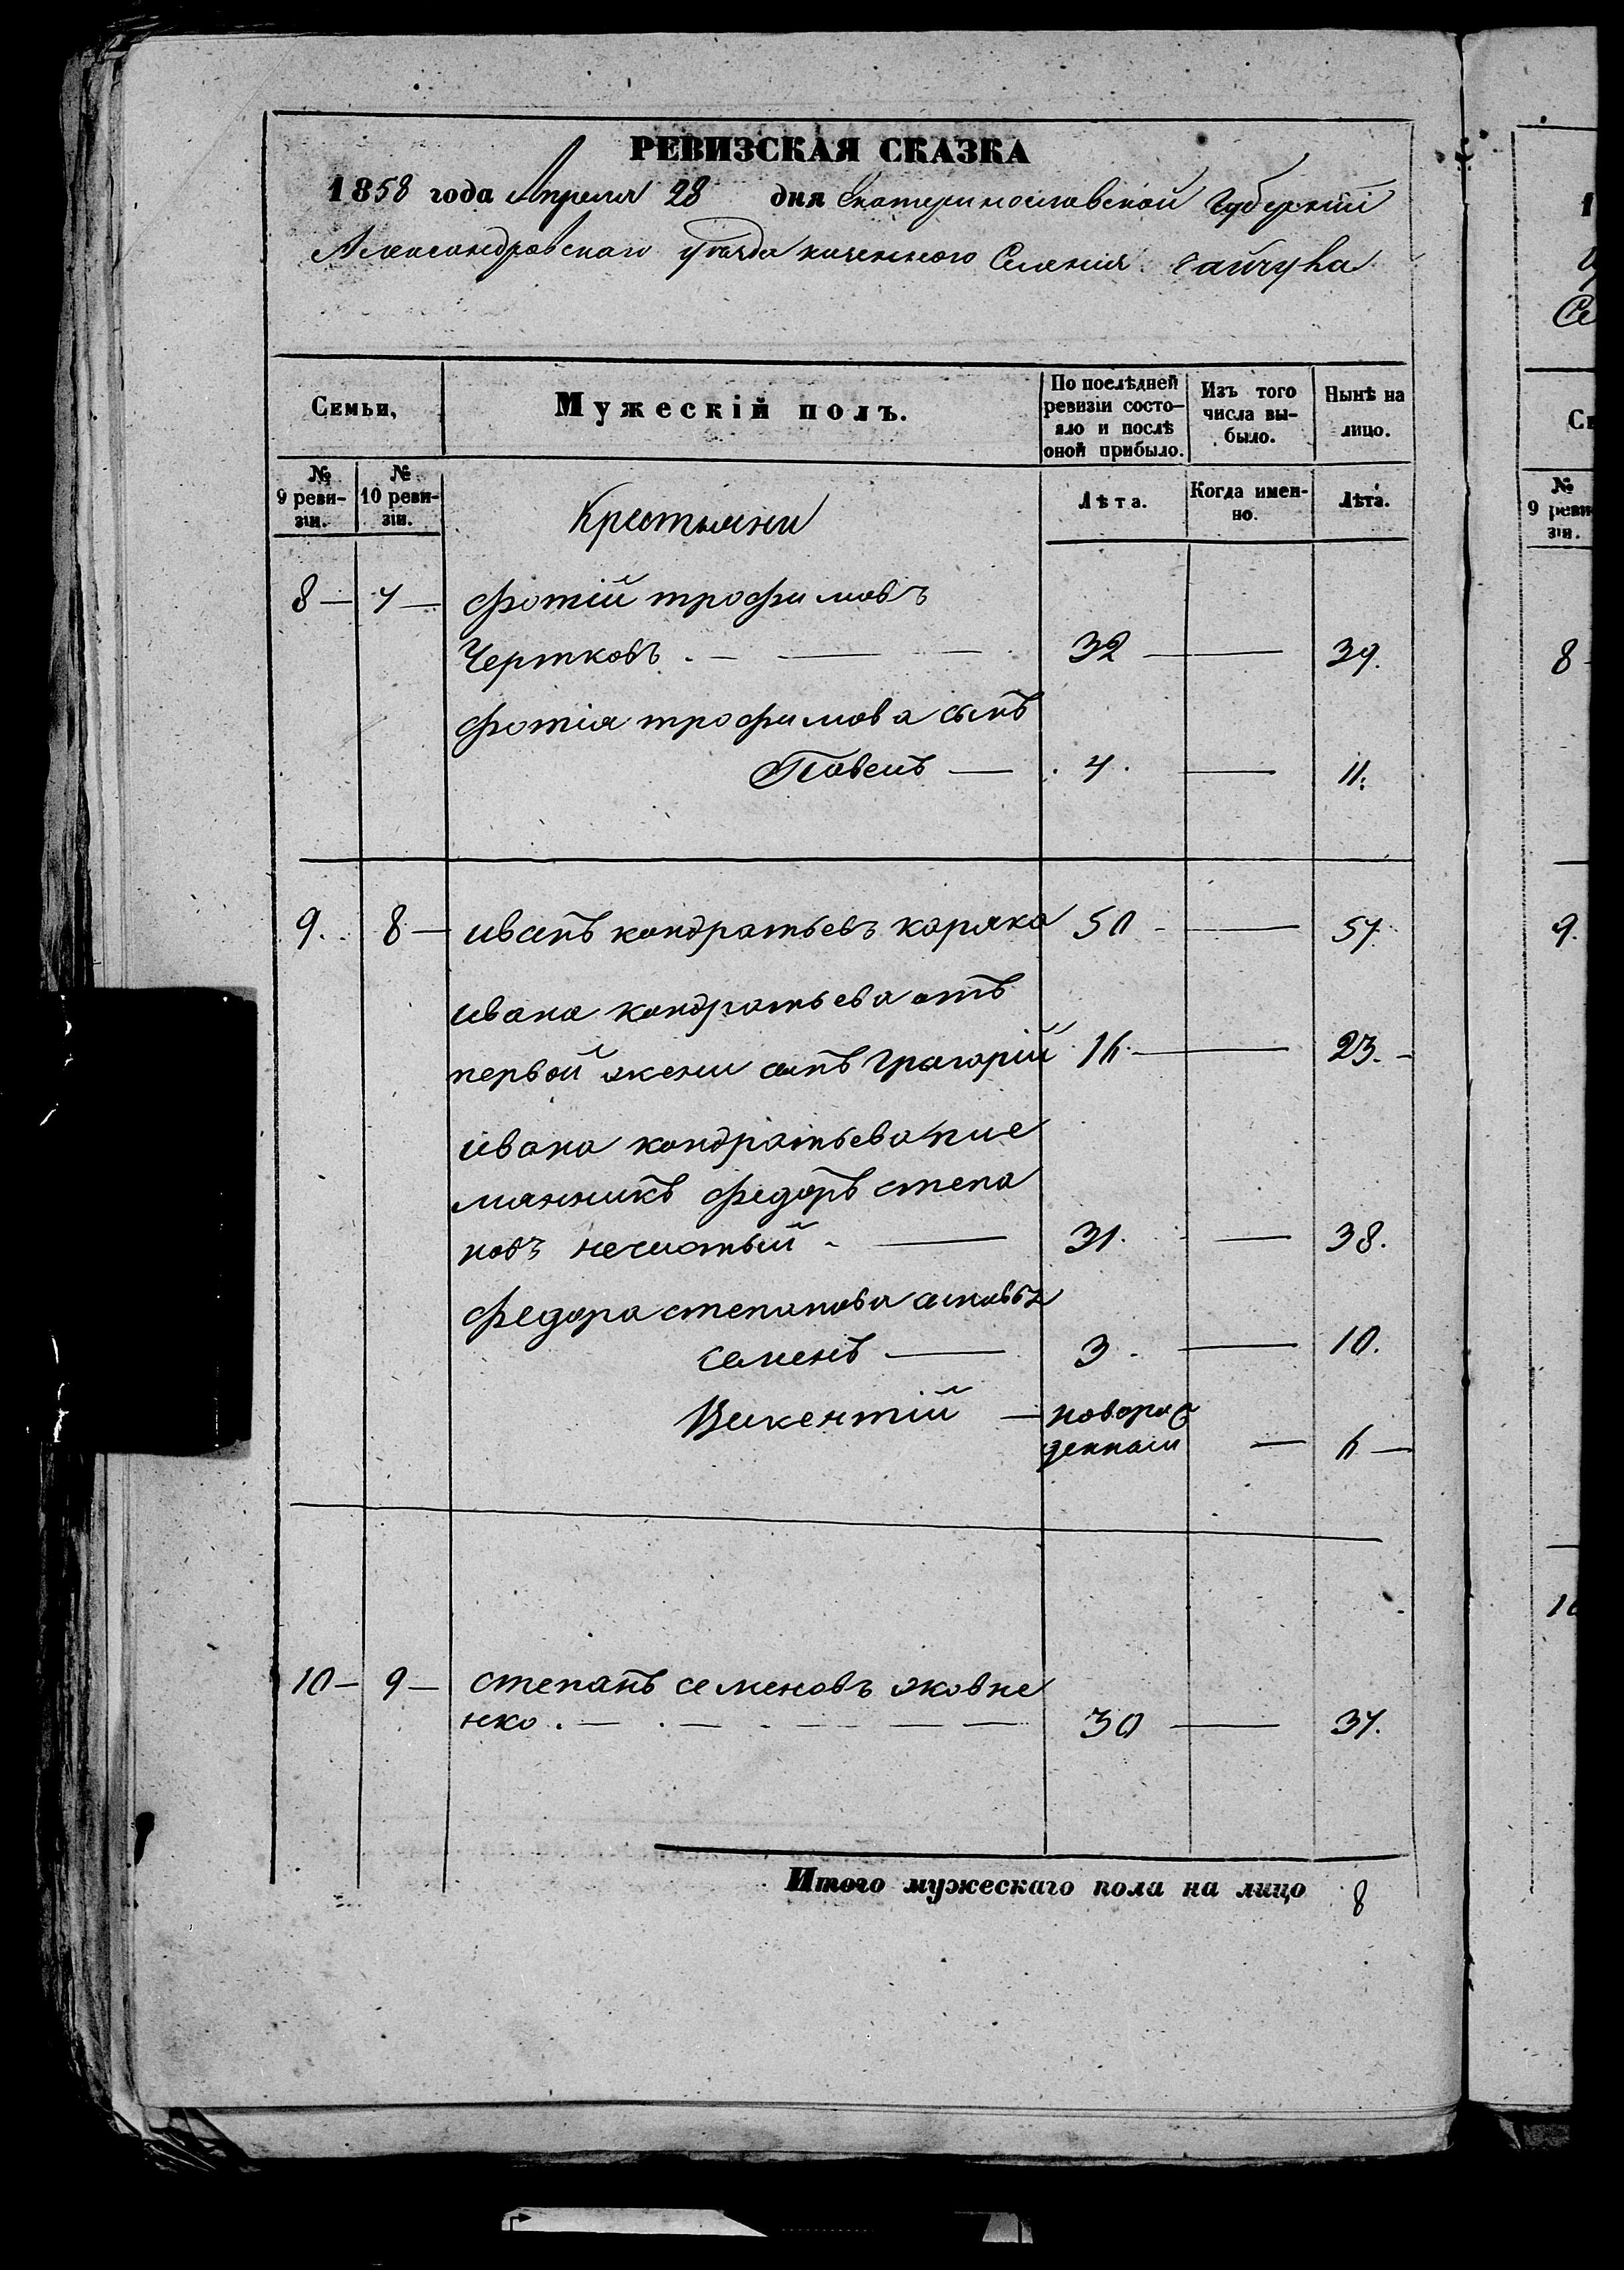 РЕВИЗСКАЯ СКАЗКА
1858 года Апреля 28 дня Екатеринославской Губернии
Александровскаго уезда казенного Селения Гайчула
Семьи, Мужескій полъ. По послѣдней ревизіи состо- яло и послѣ оной прибыло. Изъ того числа вы- было. Нынѣ на лицо.
№ 9 реви- зіи. № 10 реви- зіи. Крестьяни Лѣта. Когда имен- но. Лѣта.
8 — 7 — фотій трофимовъ
Чертковъ . — — — 32 — 39.
фотія трофимова сынъ
Павелъ — 7. — 11.
9. 8 — иванъ кондратьевъ каряка 50 — 57
ивана кондратьева отъ
первой жени сынъ григорій 16 — 23.
ивана кондратьева пле
мянникъ федоръ степа
новъ нечистый — 31. — 38.
федора степанова сыновья
семенъ — 3 — 10.
Викентій — новорож
денный — 6 —
10 — 9 — степанъ семеновъ яковле
нко . — . — . — — — 30 — 37.
Итого мужескаго пола на лицо 8
1
Се
Се
№
9 реви-
зіи.
8
9.
10